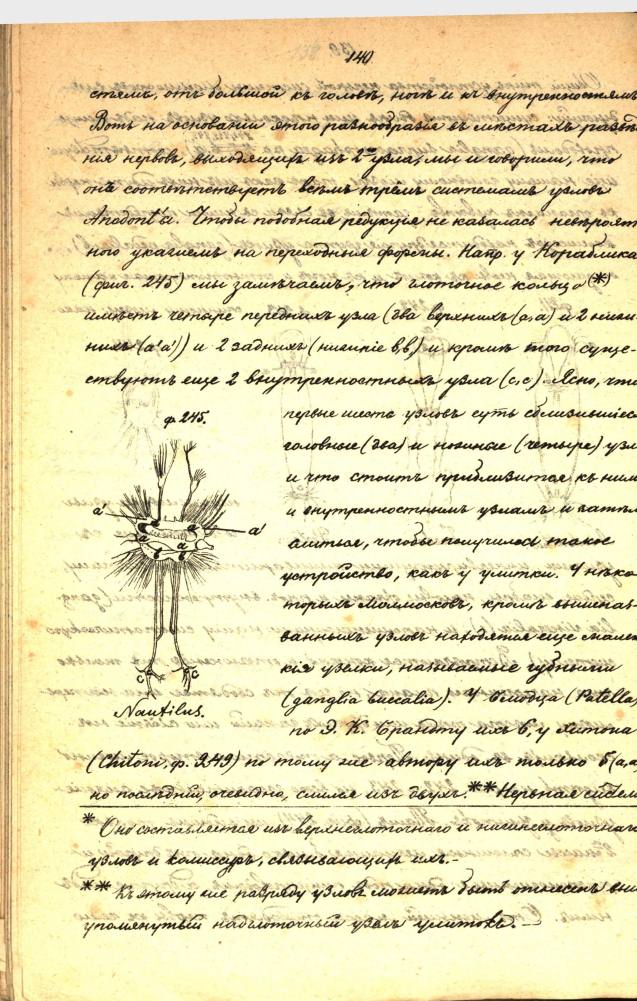 140
стямъ, отъ большой къ головѣ, ногѣ и къ внутренностямъ.
Вотъ на основаніи этого разнообразія въ мѣстахъ развѣ
нія нервовъ, выходящихъ изъ 2го узла, мы и говорили, что
онѣ соотвѣтствуетъ всѣмъ тремъ системамъ узловъ
Anodont'а. Чтобы подобная редукція не казалась невѣроят
ного укажемъ на переходныя формы. Напр. у Кораблика
(фиг. 245) мы замѣчаемъ, что глоточное кольцо (*)
имѣетъ четыре переднихъ узла (два верхнихъ (a,a) и 2 ниж
нихъ (a'a')) и 2 заднихъ (нижніе b,b) и кромѣ того суще-
ствуютъ еще 2 внутренностныхъ узла (c,c). Ясно, что
первые шесть узловъ суть сблизившіеся
головные (два) и ножные (четыре) узл
и что стоитъ приблизится къ ним
и внутренностнымъ узламъ и затѣм
слиться, чтобы получилось такое
устройство, какъ у улитки. У нѣко
торыхъ Моллюсковъ, кромѣ вышеназ-
ванныхъ узловъ находятся еще мален
кія узелки, называемые губными
(ganglia buccalia). У блюдца (Patella)
по Э. К. Брандту ихъ 6, у хитона
(Chiton, ф. 249) по тому же автору ихъ только 5 (a,a
но послѣдній, очевидно, слился изъ двухъ. ** Нервная систем
ф. 245.
a'
a'
a
a
b
b
c
c
Nautilus.
* Оно составляется изъ верхнеглоточнаго и нижнеглоточнаго
узловъ и комиссуръ, связывающихъ ихъ.-
** Къ этому же разряду узловъ можетъ быть отнесенъ вы
упомянутый надглоточный узелъ улитокъ.-